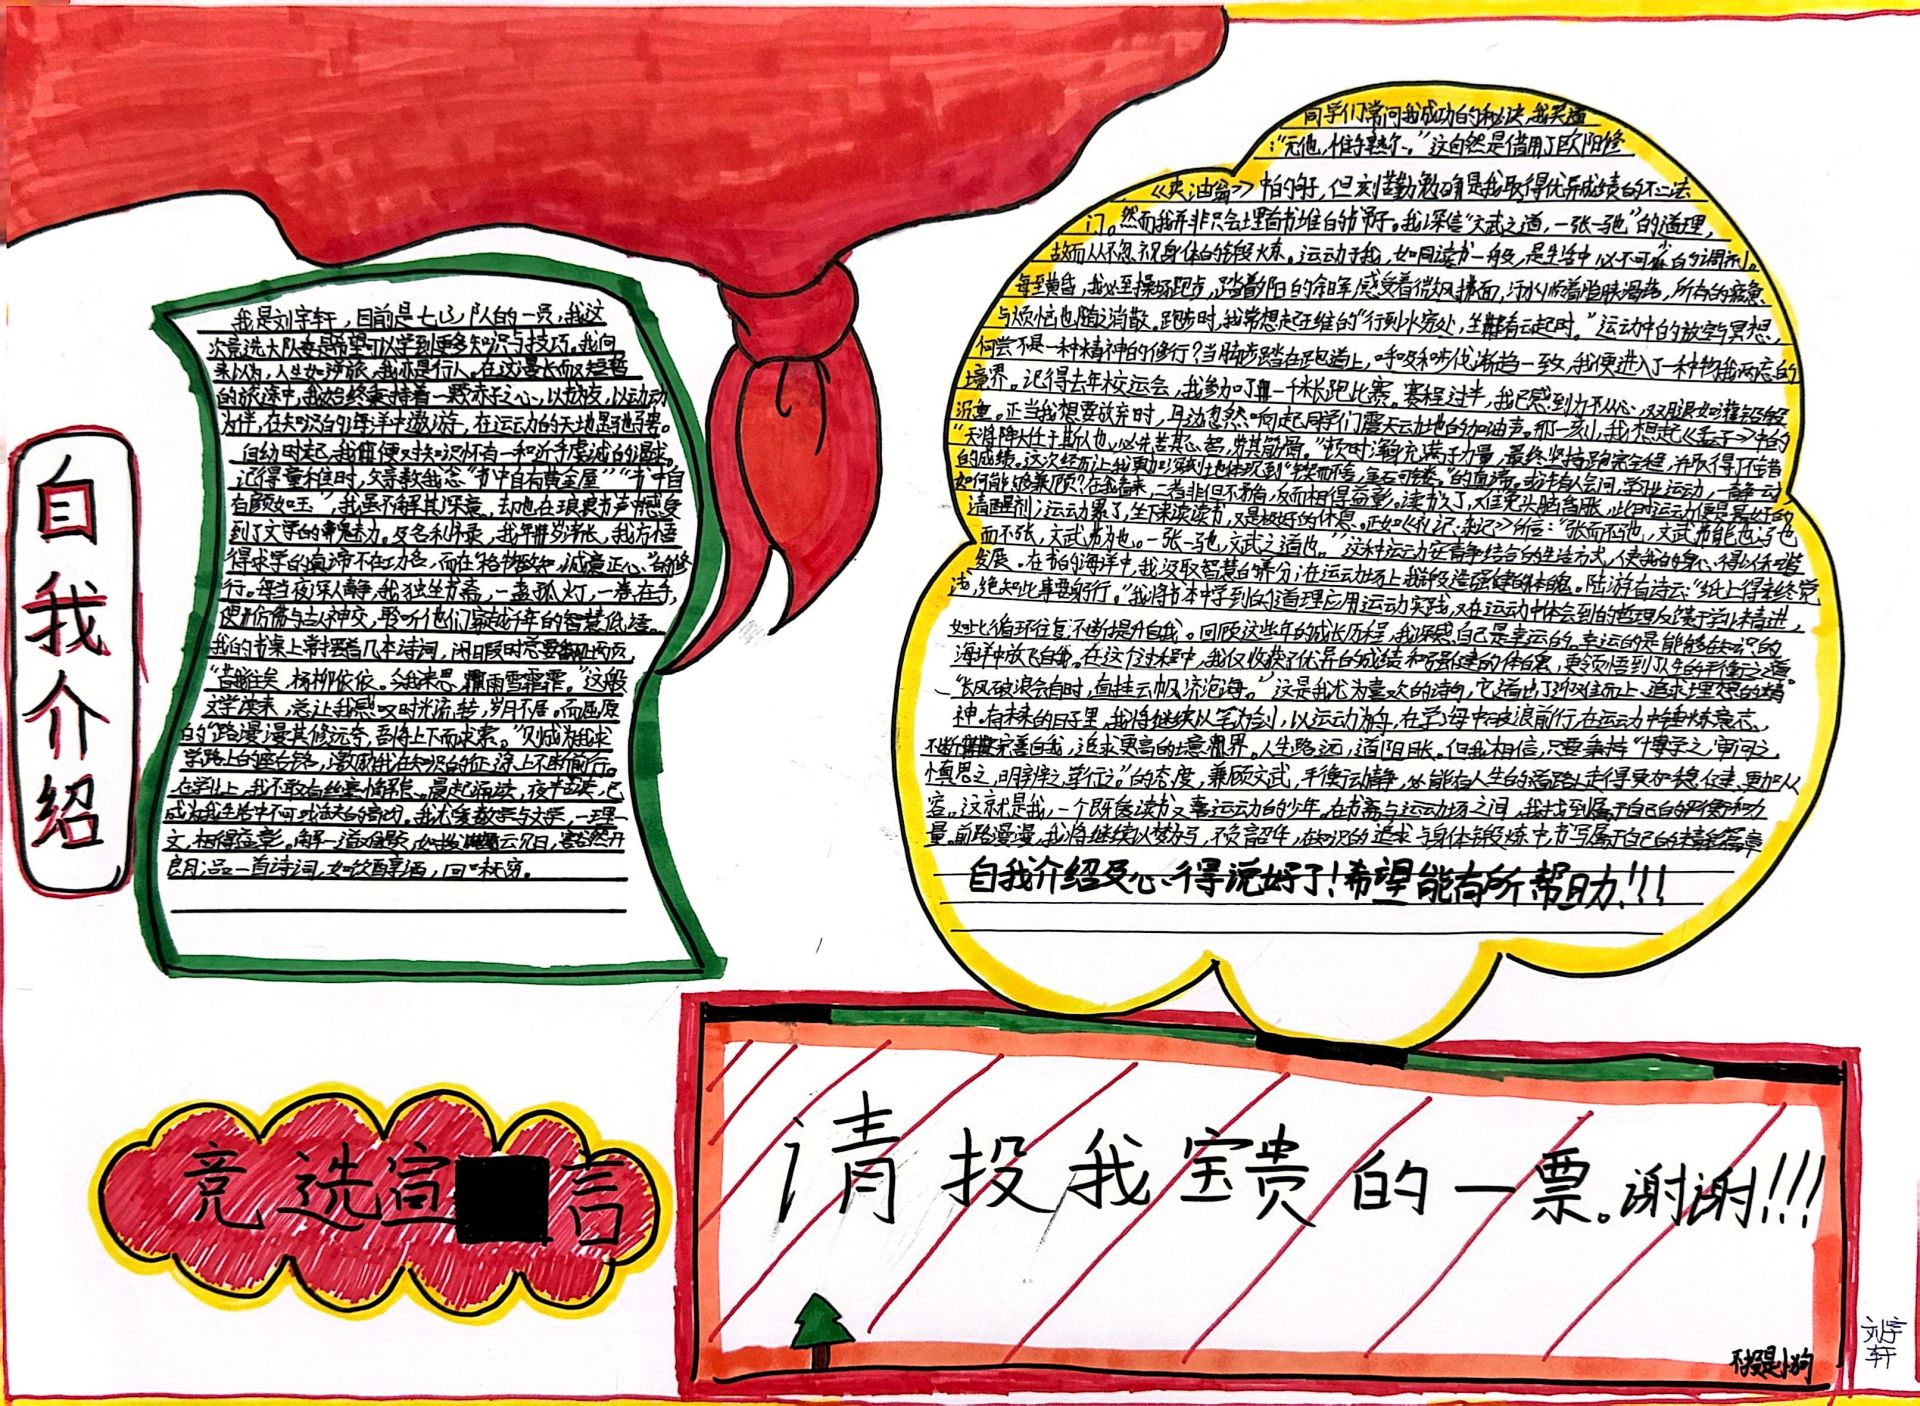 自我介绍
我是刘宇轩，目前是七(3)中队的一员，我这
次竞选大队委是希望可以学到更多知识与技巧。我向
来以为，人生如逆旅，我亦是行人。在这漫长而又短暂
的旅途中，我始终秉持着一颗赤子之心，以书为友，以运动
为伴，在知识的海洋中遨游，在运动的天地里驰骋。
自幼时起，我便对知识怀有一种近乎虔诚的渴求。
记得童稚时，父亲教我念“书中自有黄金屋”“书中自
有颜如玉”，我虽不解其深意，却也在琅琅书声中感受
到了文学的魅力。及
年岁渐长，我方悟
得求学的真谛不在功名，而在“格物致知，诚意正心”的修
行。每当夜深人静，我独坐书斋，一盏孤灯，一卷在手，
便仿佛与古人神交，聆听他们穿越千年的智慧低语。
我的书桌上常摆着几本诗词，闲暇时总要翻上两页，
“昔我往矣，杨柳依依。今我来思，雨雪霏霏。”这般
文学读来，总让我感叹时光流转，岁月不居。而屈原
的“路漫漫其修远兮，吾将上下而求索。”则成为我求
学路上的座右铭，激励我在知识的征途上不断前行。
在学业上，我不敢有丝毫懈怠。晨起诵读，夜半苦读，已
成为我生活中不可或缺的部分。我尤爱数学与文学，一理一
文，相得益彰。解一道难题，如拨云见日，豁然开
朗；品一首诗词，如饮醇酒，回味无穷。
同学们常问我成功的秘诀，我笑道
：“无他，惟手熟尔。”这自然是借用了欧阳修
《卖油翁》中的句子，但刻苦勤勉确是我取得优异成绩的不二法
门。然而我并非只会埋首书堆的书呆子。我深信“文武之道，一张一弛”的道理，
故而从不忽视身体的锻炼。运动于我，如同读书一般，是生活中必不可少的调剂。
每至黄昏，我必至操场跑步，踏着夕阳的余晖，感受着微风拂面，汗水顺着脸颊滑落，所有的疲惫
与烦恼也随之消散。跑步时，我常想起王维的“行到水穷处，坐看云起时。”运动中的放空与冥想，
何尝不是一种精神的修行？当脚步踏在跑道上，呼吸和步伐渐趋一致，我便进入了一种物我两忘的
境界。记得去年校运会，我参加了一千米长跑比赛。赛程过半，我已感到力不从心，双腿如灌铅般
沉重。正当我想要放弃时，耳边忽然响起同学们震天动地的加油声。那一刻，我想起《孟子》中的
“天将降大任于斯人也，必先苦其心智，劳其筋骨。”顿时浑身充满了力量，最终坚持跑完全程，并取得了不错
的成绩。这次经历让我更加深刻地体现到“锲而不舍，金石可镂。”的真谛。或许有人会问，学业运动，一静一动，
如何能够兼顾？在我看来，二者非但不矛盾，反而相得益彰。读书久了，难免头脑昏胀，此时运动便是最好的
清醒剂；运动累了，坐下来读读书，又是极好的休息。正如《礼记·杂记》所言：“张而不弛，文武弗能也；弛
而不张，文武弗为也。一张一弛，文武之道也。”这种运动安静结合的生活方式，使我的身心得以和谐
发展。在书的海洋中，我汲取智慧的养分；在运动场上，我锻造强健的体魄。陆游有诗云：“纸上得来终觉
浅，绝知此事要躬行。”我将书本中学到的道理应用运动实践，又在运动中体会到的哲理反馈于学业精进，
如此循环往复，不断提升自我。回顾这些年的成长历程，我深感自己是幸运的。幸运的是能够在知识的
海洋中放飞自我。在这个过程中，我仅收获了优异的成绩和强健的体魄，更领悟到了人生的平衡之道。
“长风破浪会有时，直挂云帆济沧海。”这是我尤为喜欢的诗句，它道出了迎难而上、追求理想的精
神。在未来的日子里，我将继续以笔为剑，以运动为舟，在学海中破浪前行，在运动中锤炼意志，
不断完善自我，追求更高的境界。人生路远，道阻且长。但我相信，只要秉持“博学之，审问之，
慎思之，明辨之，笃行之。”的态度，兼顾文武，平衡动静，必能在人生的道路上走得更加稳健、更加从
容。这就是我，一个既爱读书又喜运动的少年。在书斋与运动场之间，我找到属于自己的平衡和力
量。前路漫漫，我将继续以梦为马，不负韶华，在知识的追求与身体锻炼中书写属于自己的精彩篇章
自我介绍及心得说好了！希望能有所帮助！！！
竞选宣言
请投我宝贵的一票。谢谢！！！
不投是小狗
刘宇
轩